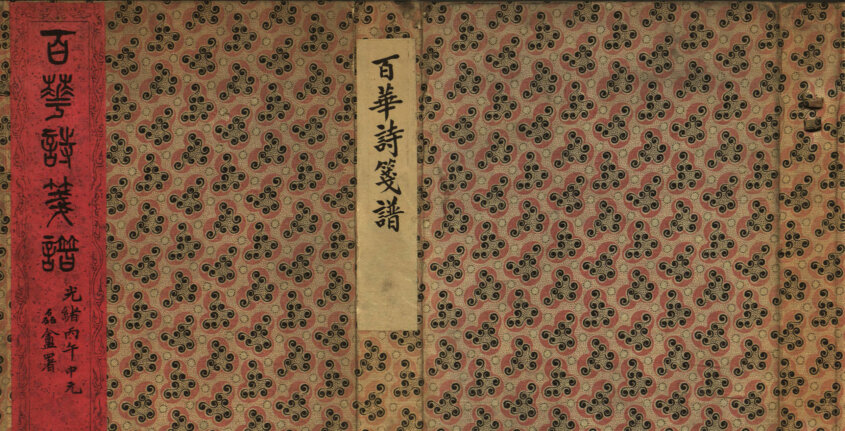 百華詩箋譜
百華詩箋譜
光緒丙午中元
磊盦署